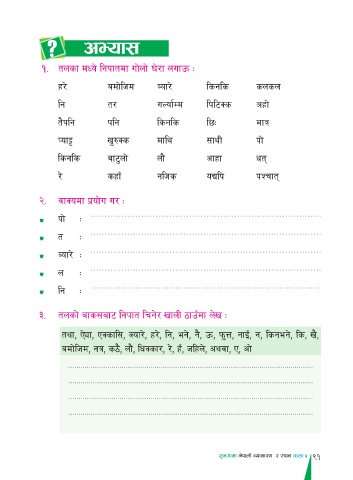 ? अभ्यास
१. तलका मध्ये निपातमा गोलो घेरा लगाऊ :
हरे बमोजिम ब्यारे किनकि कलकल
नि तर गर्ल्याम्म पिटिक्क अहो
तैपनि पनि किनकि छिः मात्र
प्याट्ट खुरुक्क माथि साथी पो
किनकि बाटुलो लौ आहा धत्
रे कहाँ नजिक यद्यपि पश्चात्
२. वाक्यमा प्रयोग गर :
पो :
त :
ब्यारे :
ल :
नि :
३. तलको बाकसबाट निपात चिनेर खाली ठाउँमा लेख :
तथा, ऐया, एक्कासि, क्यारे, हरे, नि, भने, नै, ऊ, फूत्त, नाइँ, न, किनभने, कि, खै,
बमोजिम, नत्र, कठै, लौ, धिक्कार, रे, हँ, जहिले, अथवा, ए, ओ
नेपाली व्याकरण र रचना कक्षा ५ ९१